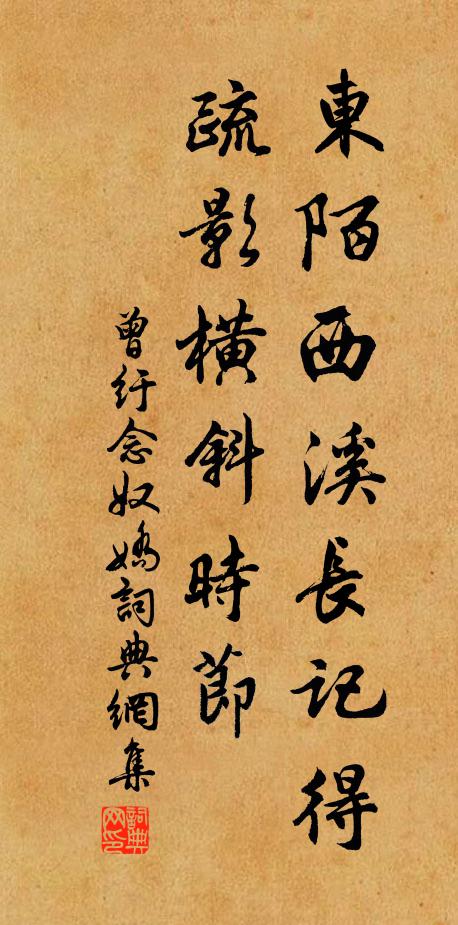 東陌西溪長記得
疏影橫斜時節
曾紆念奴嬌詞典網集
詞典网印